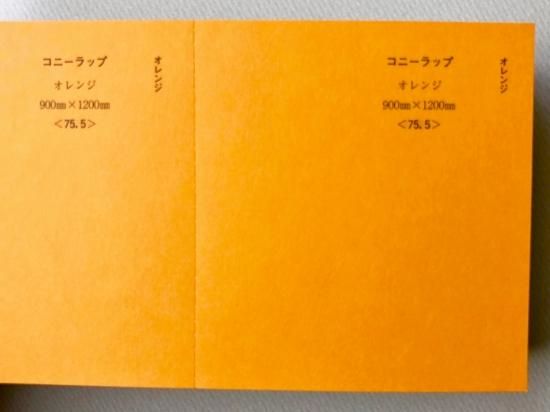 コニーラップ
オレンジ
900㎜×1200㎜
＜75.5＞
オレンジ
コニーラップ
オレンジ
900㎜×1200㎜
＜75.5＞
オレンジ